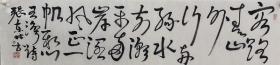 客路
青山外
行舟
绿水前
潮平两
岸阔
风正一
帆悬
王湾诗
书